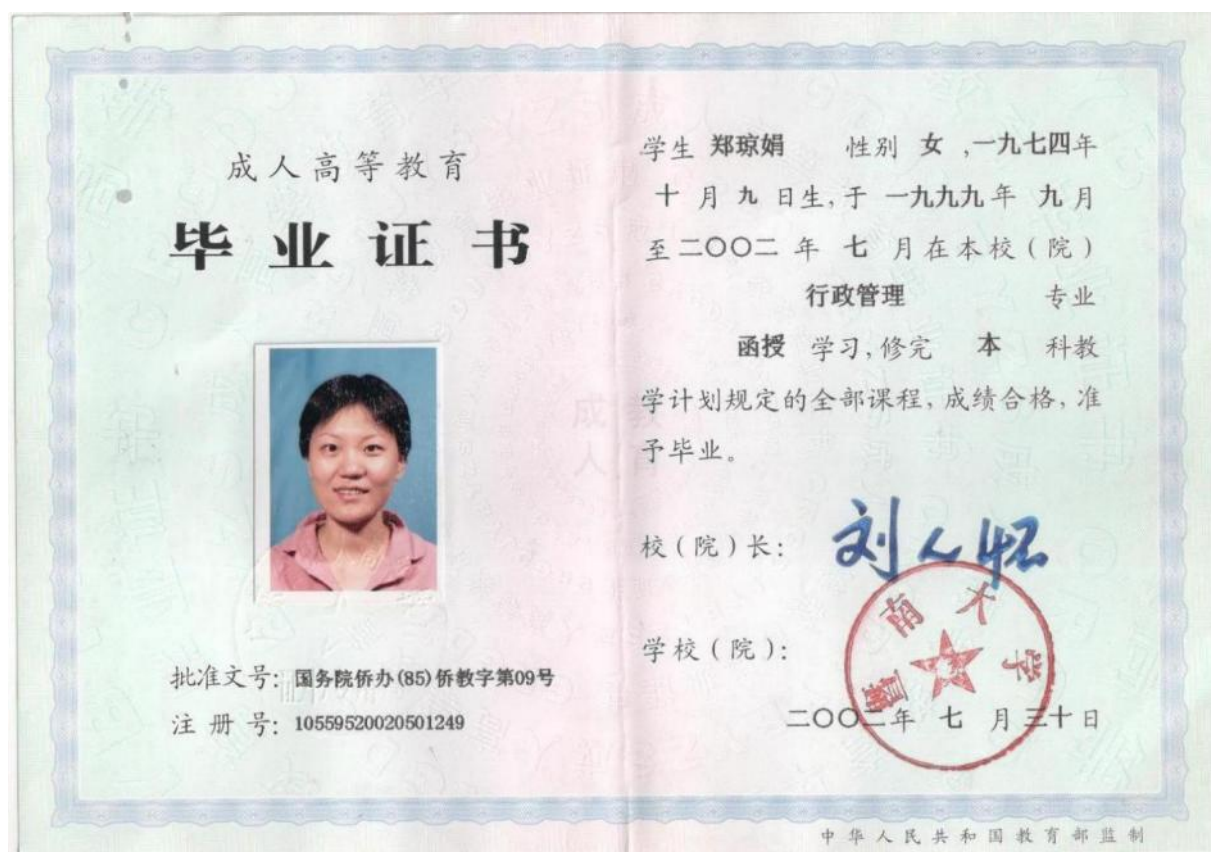 成人高等教育
毕业证书
批准文号：国务院侨办(85)侨教字第09号
注册号：10559520020501249
学生 郑琼娟 性别 女 ,一九七四年
十月九日生,于一九九九年九月
至二〇〇二年七月在本校(院)
行政管理 专业
函授 学习,修完 本 科教
学计划规定的全部课程,成绩合格,准
予毕业。
校(院)长： 刘人怀
学校(院)：
暨南大学
二〇〇二年七月三十日
中华人民共和国教育部监制